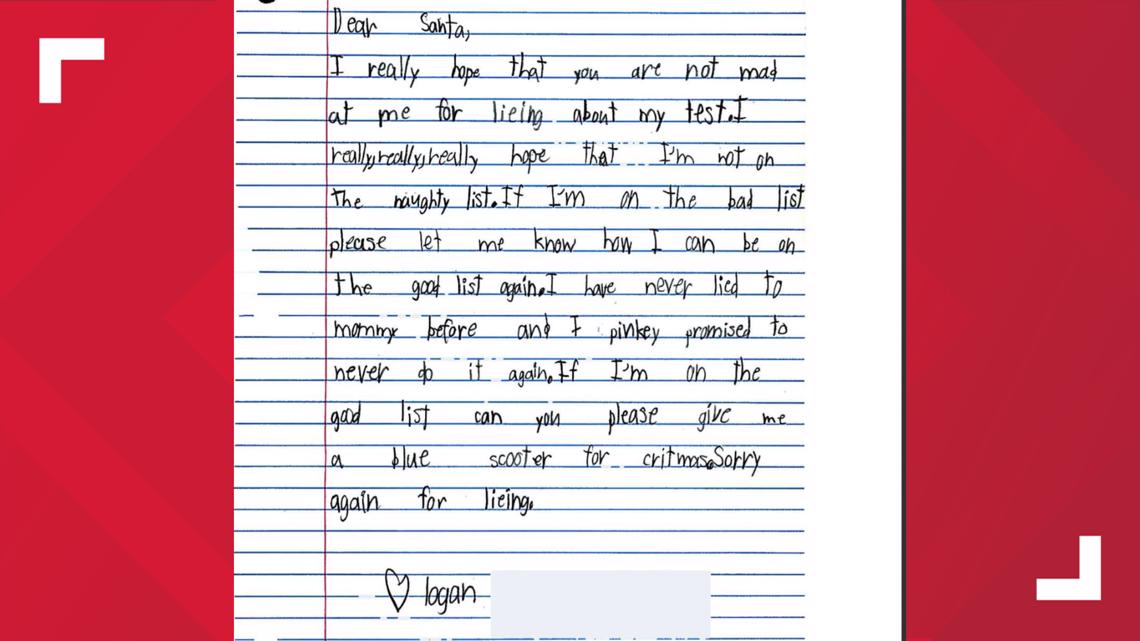 Dear Santa,
I really hope that you are not mad
at me for lieing about my test.I
really,really,really hope that I'm not on
the naughty list.If I'm on the bad list
please let me know how I can be on
the good list again.I have never lied to
mommy before and I pinkey promised to
never do it again.If I'm on the
good list can you please give me
a blue scooter for critmas.Sorry
again for lieing.
♡ logan